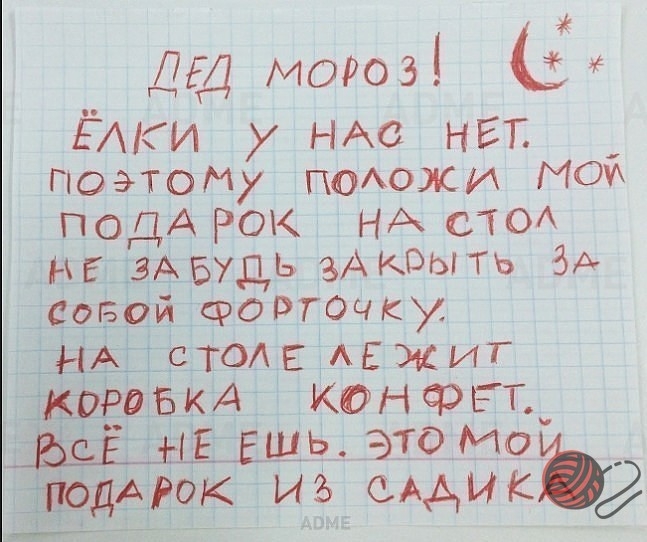 ДЕД МОРОЗ!
ЁЛКИ У НАС НЕТ.
ПОЭТОМУ ПОЛОЖИ МОЙ
ПОДАРОК НА СТОЛ
НЕ ЗАБУДЬ ЗАКРЫТЬ ЗА
СОБОЙ ФОРТОЧКУ.
НА СТОЛЕ ЛЕЖИТ
КОРОБКА КОНФЕТ.
ВСЁ НЕ ЕШЬ. ЭТО МОЙ
ПОДАРОК ИЗ САДИКА
ADME